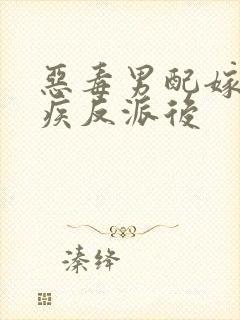 惡毒男配嫁
疾反派後
溱绛